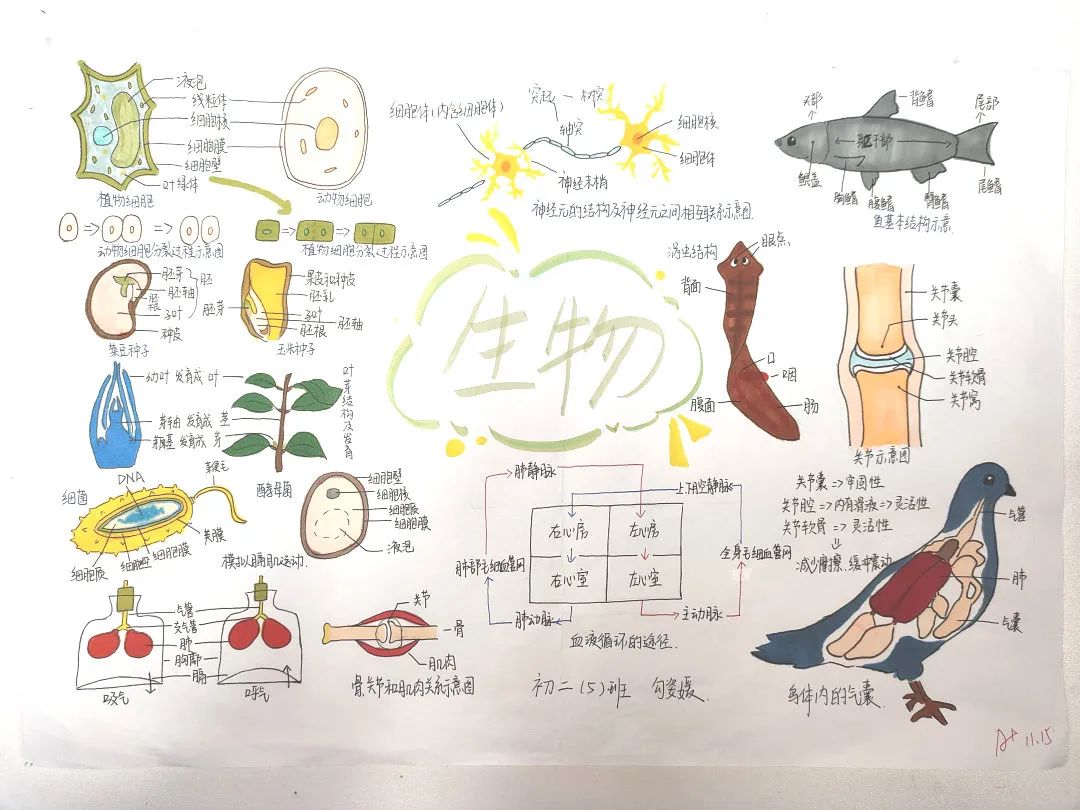 液泡
线粒体
细胞核
细胞膜
细胞壁
叶绿体
植物细胞
动物细胞
动物细胞分裂过程示意图
植物细胞分裂过程示意图
细胞体(内含细胞体)
突起—树突
轴突
神经末梢
细胞核
细胞体
神经元的结构及神经元之间相互联系示意图
头部
背鳍
尾部
躯干部
鳃盖
胸鳍
腹鳍
臀鳍
尾鳍
鱼基本结构示意
胚芽
胚轴
胚根
子叶
胚
种皮
菜豆种子
果皮和种皮
胚乳
子叶
胚芽
胚轴
胚根
玉米种子
生物
涡虫结构
眼点
背面
口
咽
腹面
肠
关节囊
关节头
关节腔
关节软骨
关节窝
关节示意图
关节囊=>牢固性
关节腔=>内有滑液=>灵活性
关节软骨=>灵活性
减少摩擦、缓冲震动
幼叶 发育成 叶
芽轴 发育成 茎
芽原基 发育成 芽
DNA
细菌
荚膜
细胞质
细胞壁
细胞膜
酵母菌
细胞壁
细胞核
细胞质
细胞膜
液泡
模拟膈肌运动
气管
支气管
肺
胸廓
膈
吸气
呼气
关节
骨
肌肉
骨、关节和肌肉关系示意图
肺静脉
上下腔静脉
右心房
左心房
右心室
左心室
肺部毛细血管网
全身毛细血管网
肺动脉
主动脉
血液循环的途径.
初二(5)班
气管
肺
气囊
鸟体内的气囊.
A+ 11.15